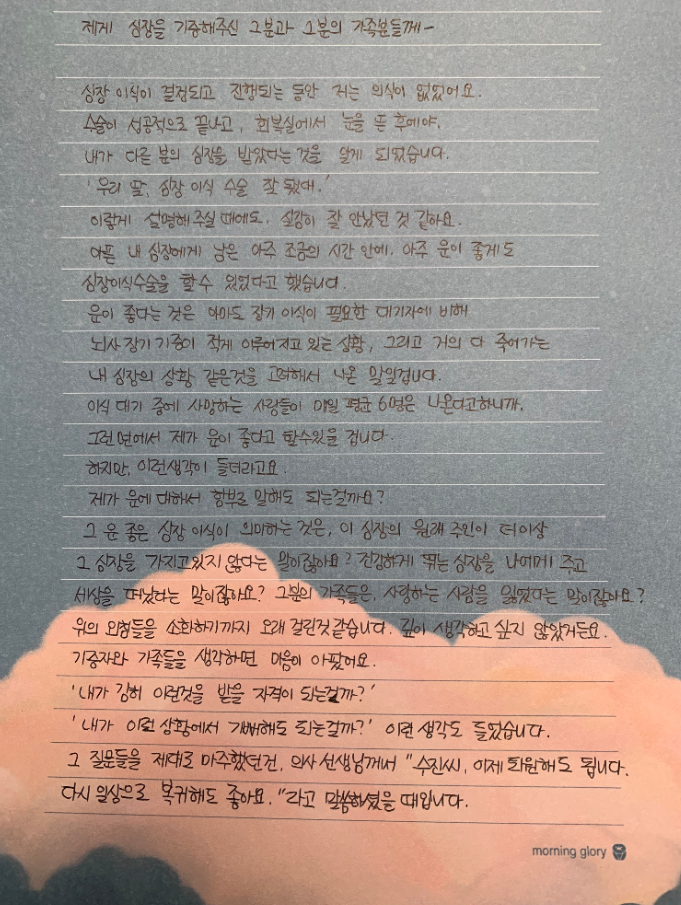 제게 심장을 기증해주신 그분과 그분의 가족분들께-
심장 이식이 결정되고 진행되는 동안 저는 의식이 없었어요.
수술이 성공적으로 끝나고, 회복실에서 눈을 뜬 후에야,
내가 다른 분의 심장을 받았다는 것을 알게 되었습니다.
'우리 딸, 심장 이식 수술 잘 됐대.'
이렇게 설명해주실 때에도, 실감이 잘 안났던 것 같아요.
아픈 내 심장에게 남은 아주 조금의 시간 안에, 아주 운이 좋게도
심장이식수술을 할 수 있었다고 했습니다.
운이 좋다는 것은 아마도 장기 이식이 필요한 대기자에 비해
뇌사 장기 기증이 적게 이루어지고 있는 상황, 그리고 거의 다 죽어가는
내 심장의 상황 같은것을 고려해서 나온 말일겁니다.
이식 대기 중에 사망하는 사람들이 매일 평균 6명은 나온다고하니까.
그런 면에서 제가 운이 좋다고 할수있을 겁니다.
하지만, 이런생각이 들더라고요.
제가 운에 대해서 함부로 말해도 되는걸까요?
그 운 좋은 심장 이식이 의미하는 것은, 이 심장의 원래 주인이 더이상
그 심장을 가지고있지 않다는 말이잖아요? 건강하게 뛰는 심장을 나에게 주고
세상을 떠났다는 말이잖아요? 그분의 가족들은, 사랑하는 사람을 잃었다는 말이잖아요?
위의 문장들을 소화하기까지 오래 걸린것 같습니다. 깊이 생각하고 싶지 않았거든요.
기증자와 가족들을 생각하면 마음이 아팠어요.
'내가 감히 이런것을 받을 자격이 되는걸까?'
'내가 이런 상황에서 기뻐해도 되는걸까?' 이런 생각도 들었습니다.
그 질문들을 제대로 마주했던건, 의사 선생님께서 "수진씨, 이제 퇴원해도 됩니다.
다시 일상으로 복귀해도 좋아요."라고 말씀하셨을 때입니다.
morning glory